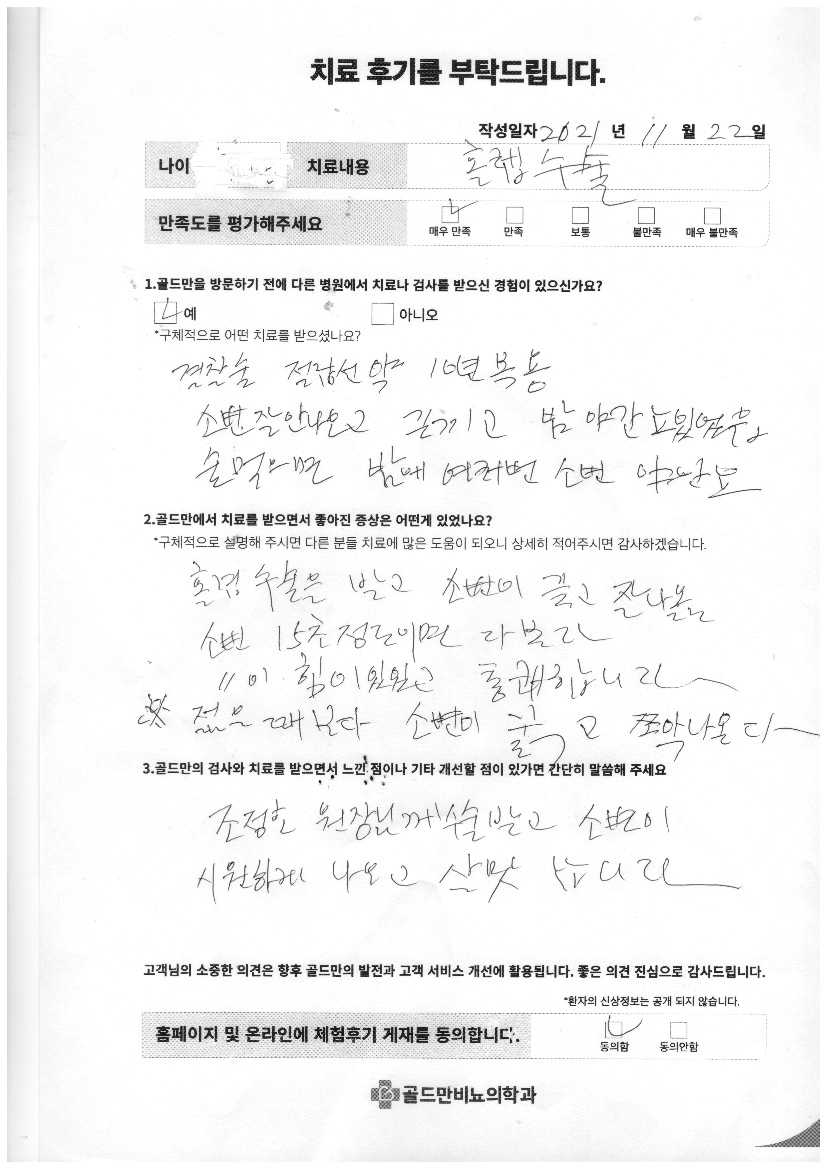 치료 후기를 부탁드립니다.
작성일자 2021 년 11 월 22 일
나이 치료내용 홀렙 수술
만족도를 평가해주세요
매우 만족 만족 보통 불만족 매우 불만족
1.골드만을 방문하기 전에 다른 병원에서 치료나 검사를 받으신 경험이 있으신가요?
예 아니오
*구체적으로 어떤 치료를 받으셨나요?
경찰술 전립선 약 10년 복용
소변 잘 안나오고 끈기고 밤 야간
술먹으면 밤에 여러번 소변 야간뇨
2.골드만에서 치료를 받으면서 좋아진 증상은 어떤게 있었나요?
*구체적으로 설명해 주시면 다른 분들 치료에 많은 도움이 되오니 상세히 적어주시면 감사하겠습니다.
수술을 받고 소변이 굵고 잘나옴
소변 15초 정도이면 다 본다
〃이 힘이 있고 통쾌합니다
※ 젊을 때보다 소변이 굵고 쫘악 나온다
3.골드만의 검사와 치료를 받으면서 느낀 점이나 기타 개선할 점이 있가면 간단히 말씀해 주세요
조정호 원장님께 수술받고 소변이
시원하게 나오고 살맛 납니다
고객님의 소중한 의견은 향후 골드만의 발전과 고객 서비스 개선에 활용됩니다. 좋은 의견 진심으로 감사드립니다.
*환자의 신상정보는 공개 되지 않습니다.
홈페이지 및 온라인에 체험후기 게재를 동의합니다.
동의함 동의안함
골드만비뇨의학과